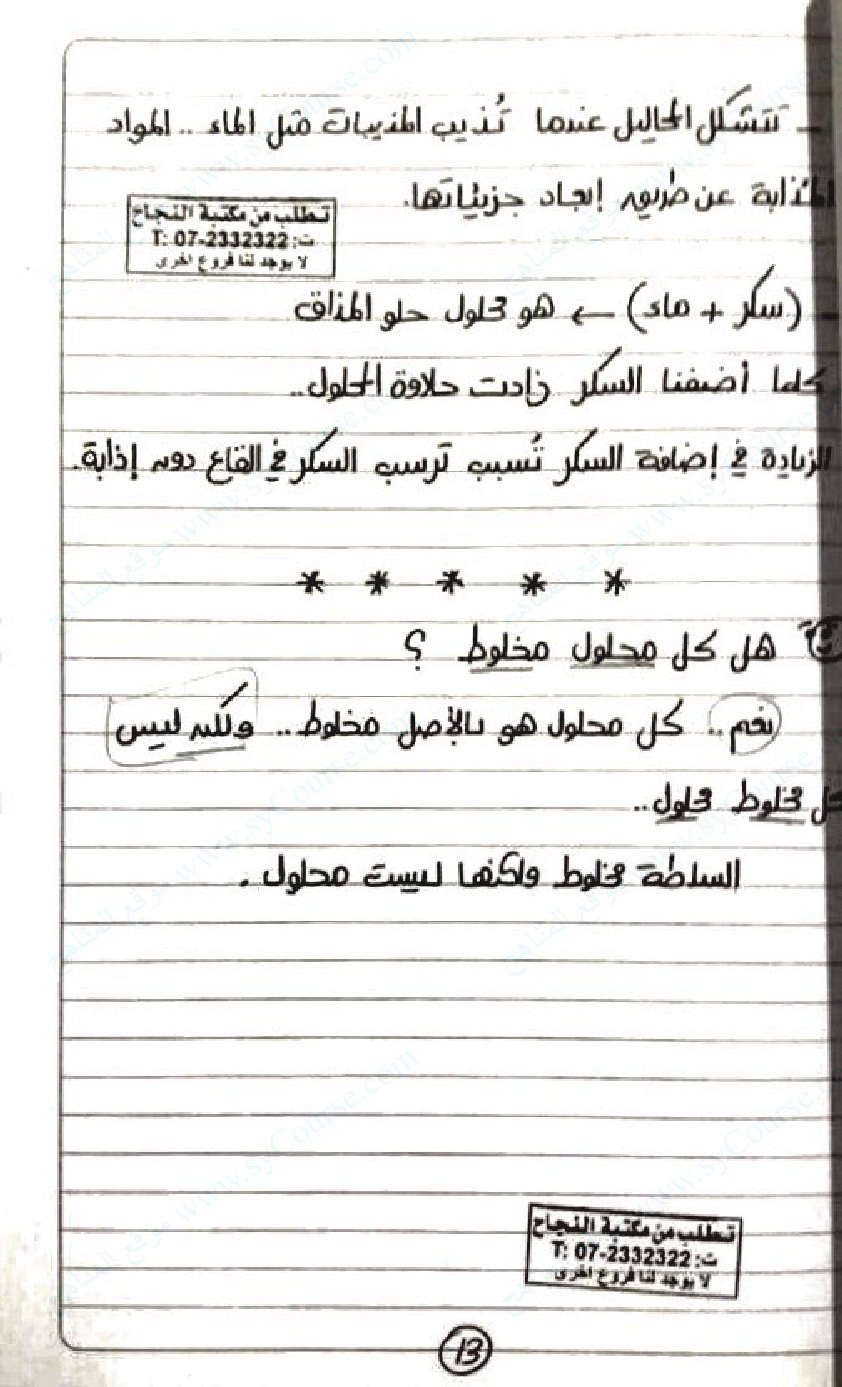 - تتشكل المحاليل عندما تُذيب المذيبات مثل الماء .. المواد
المُذابة عن طريق إبعاد جزيئاتها.
تطلب من مكتبة النجاح
ت: 2332322-07 :T
لا يوجد لنا فروع اخرى
- (سكر + ماء) ← هو محلول حلو المذاق
كلما أضفنا السكر زادت حلاوة المحلول..
الزيادة في إضافة السكر تُسبب ترسب السكر في القاع دون إذابة.
* * * * *
هل كل محلول مخلوط ؟
نعم.. كل محلول هو بالأصل مخلوط.. ولكن ليس
كل مخلوط محلول..
السلطة مخلوط ولكنها ليست محلول.
تطلب من مكتبة النجاح
ت: 2332322-07 :T
لا يوجد لنا فروع اخرى
13
موقع المناهج www.syCourse.com